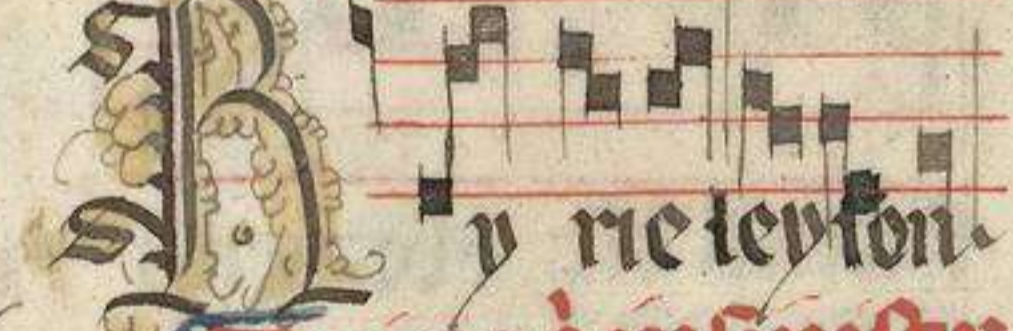 Ky rie leyson.